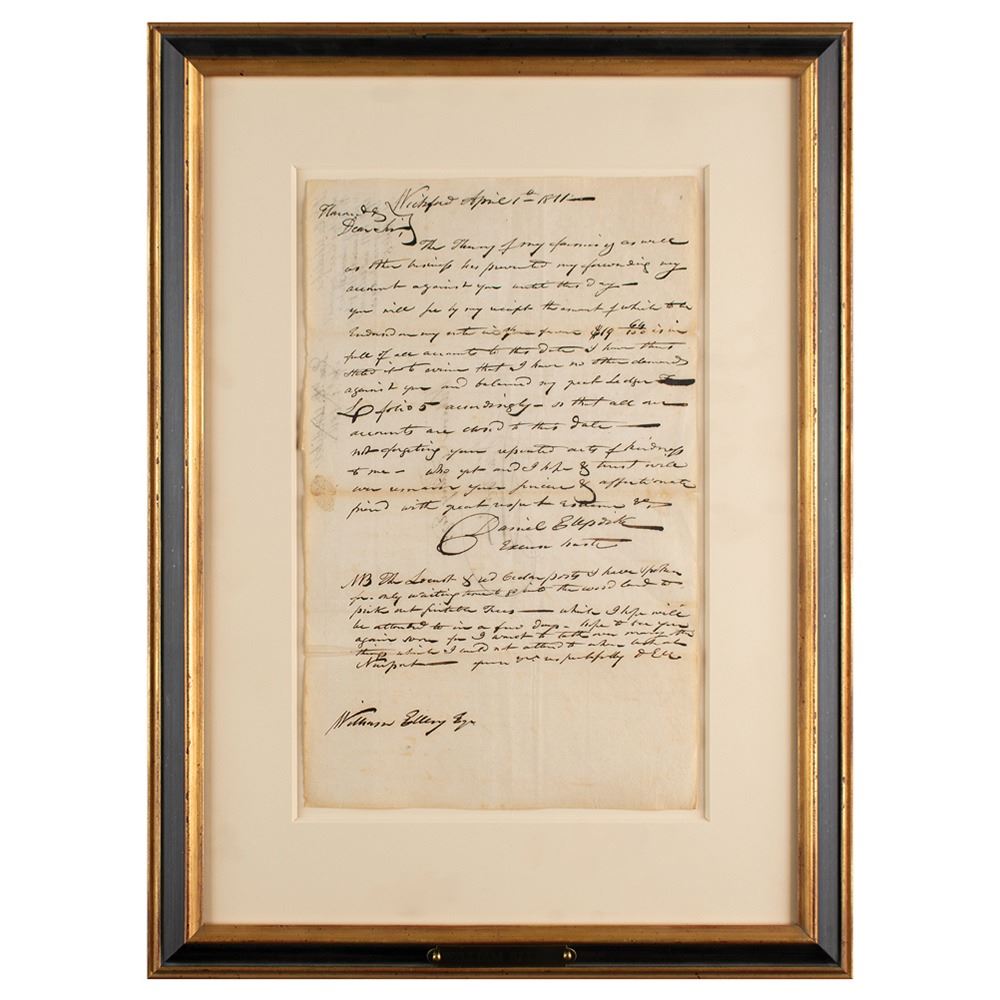 Wickford April 1st 1811
Honored &
Dear Sir,
The of my as well
as other business has prevented my forwarding my
account against you until this day
you will see by my receipt the amount of which to be
Endorsed on my note in your favour $19 64/100 is in
full of all accounts to this date I have thus
stated it to evince that I have no other demands
against you and balanced my Ledger
folio 5 accordingly — so that all our
accounts are closed to this date —
not forgeting your repeated acts of kindness
to me — who yet and I hope & trust will
ever remain your sincere & affectionate
friend with great respect esteem &c
Daniel E Updike
Excuse haste
NB The Locust & red Cedar posts I have spoken
for only waiting time to git into the wood land to
pick out suitable Trees — which I hope will
be attended to in a few days — hope to see you
again soon for I want to talk over many
things which I could not attend to when last at
Newport — your &c respectfully D E U
William Ellery Esqr